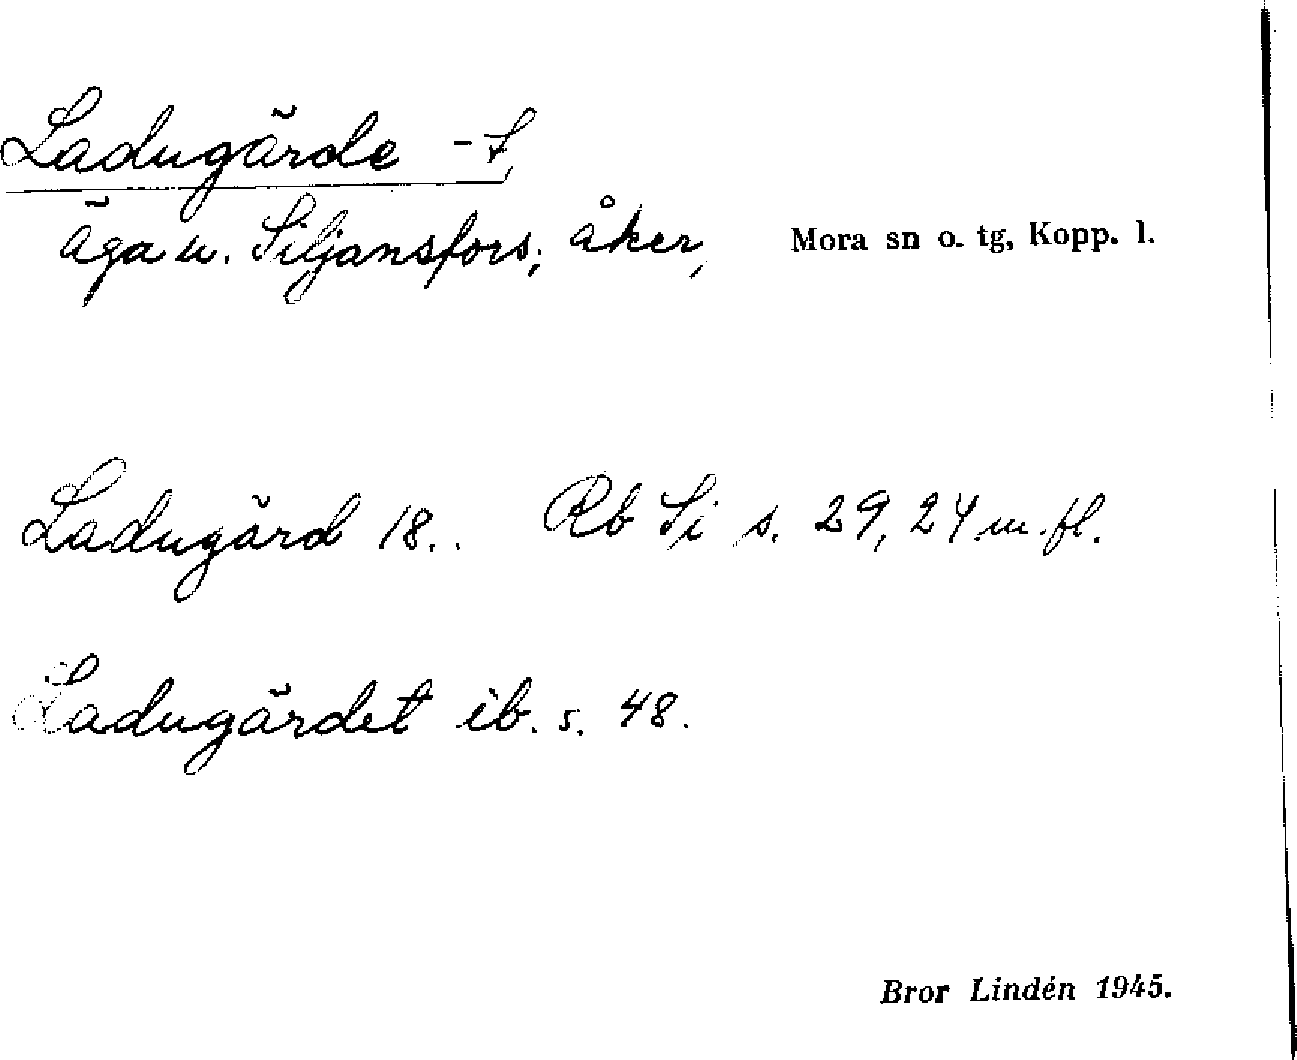 Ladugärde -t,
äga u. Siljansfors; åker, Mora sn o. tg, Kopp. l.
Ladugärd 18.. Rb Si s. 29, 24 m.fl.
Ladugärdet ib. s. 48.
Bror Lindén 1945.